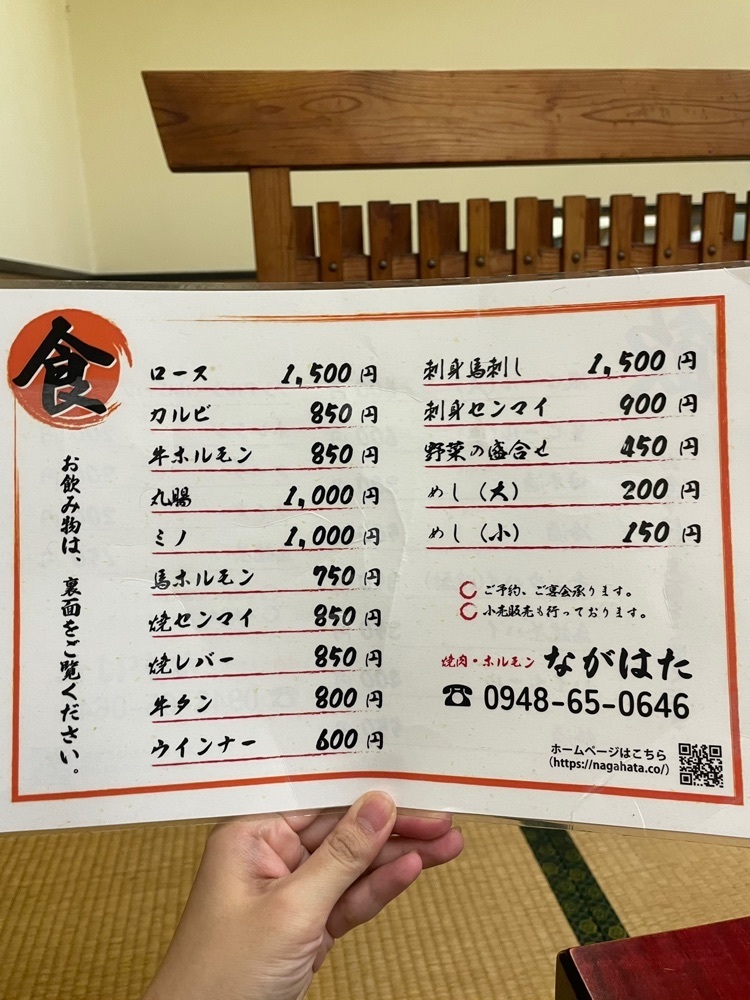 食
お飲み物は、裏面をご覧ください。
ロース 1,500円
カルビ 850円
牛ホルモン 850円
丸腸 1,000円
ミノ 1,000円
馬ホルモン 750円
焼センマイ 850円
焼レバー 850円
牛タン 800円
ウインナー 600円
刺身馬刺し 1,500円
刺身センマイ 900円
野菜の盛合せ 450円
めし(大) 200円
めし(小) 150円
○ご予約、ご宴会承ります。
○小売販売も行っております。
焼肉・ホルモン ながはた
☎ 0948-65-0646
ホームページはこちら
(https://nagahata.co/)